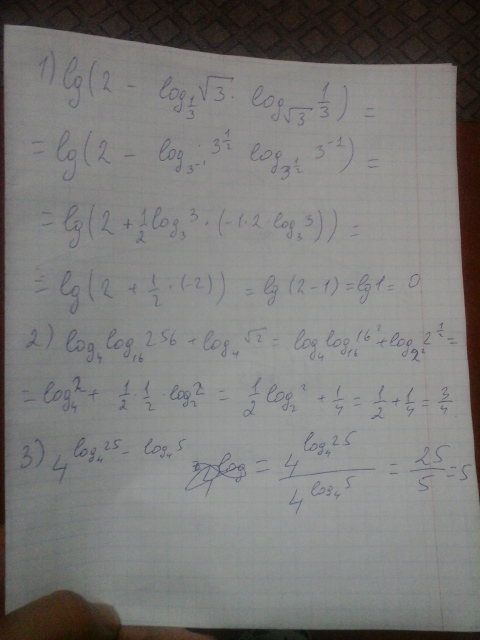 1) lg(2 - log_{1/3} √3 · log_{√3} 1/3) =
= lg(2 - log_{3^{-1}} 3^{1/2} log_{3^{1/2}} 3^{-1}) =
= lg(2 + 1/2 log_3 3 · (-1·2·log_3 3)) =
= lg(2 + 1/2 · (-2)) = lg(2-1) = lg1 = 0
2) log_4 log_{16} 256 + log_4 √2 = log_4 log_{16} 16^2 + log_{2^2} 2^{1/2} =
= log_4 2 + 1/2 · 1/2 · log_2 2 = 1/2 log_2 2 + 1/4 = 1/2 + 1/4 = 3/4
3) 4^{log_4 25 - log_4 5} = 4^{log_4 25} / 4^{log_4 5} = 25/5 = 5